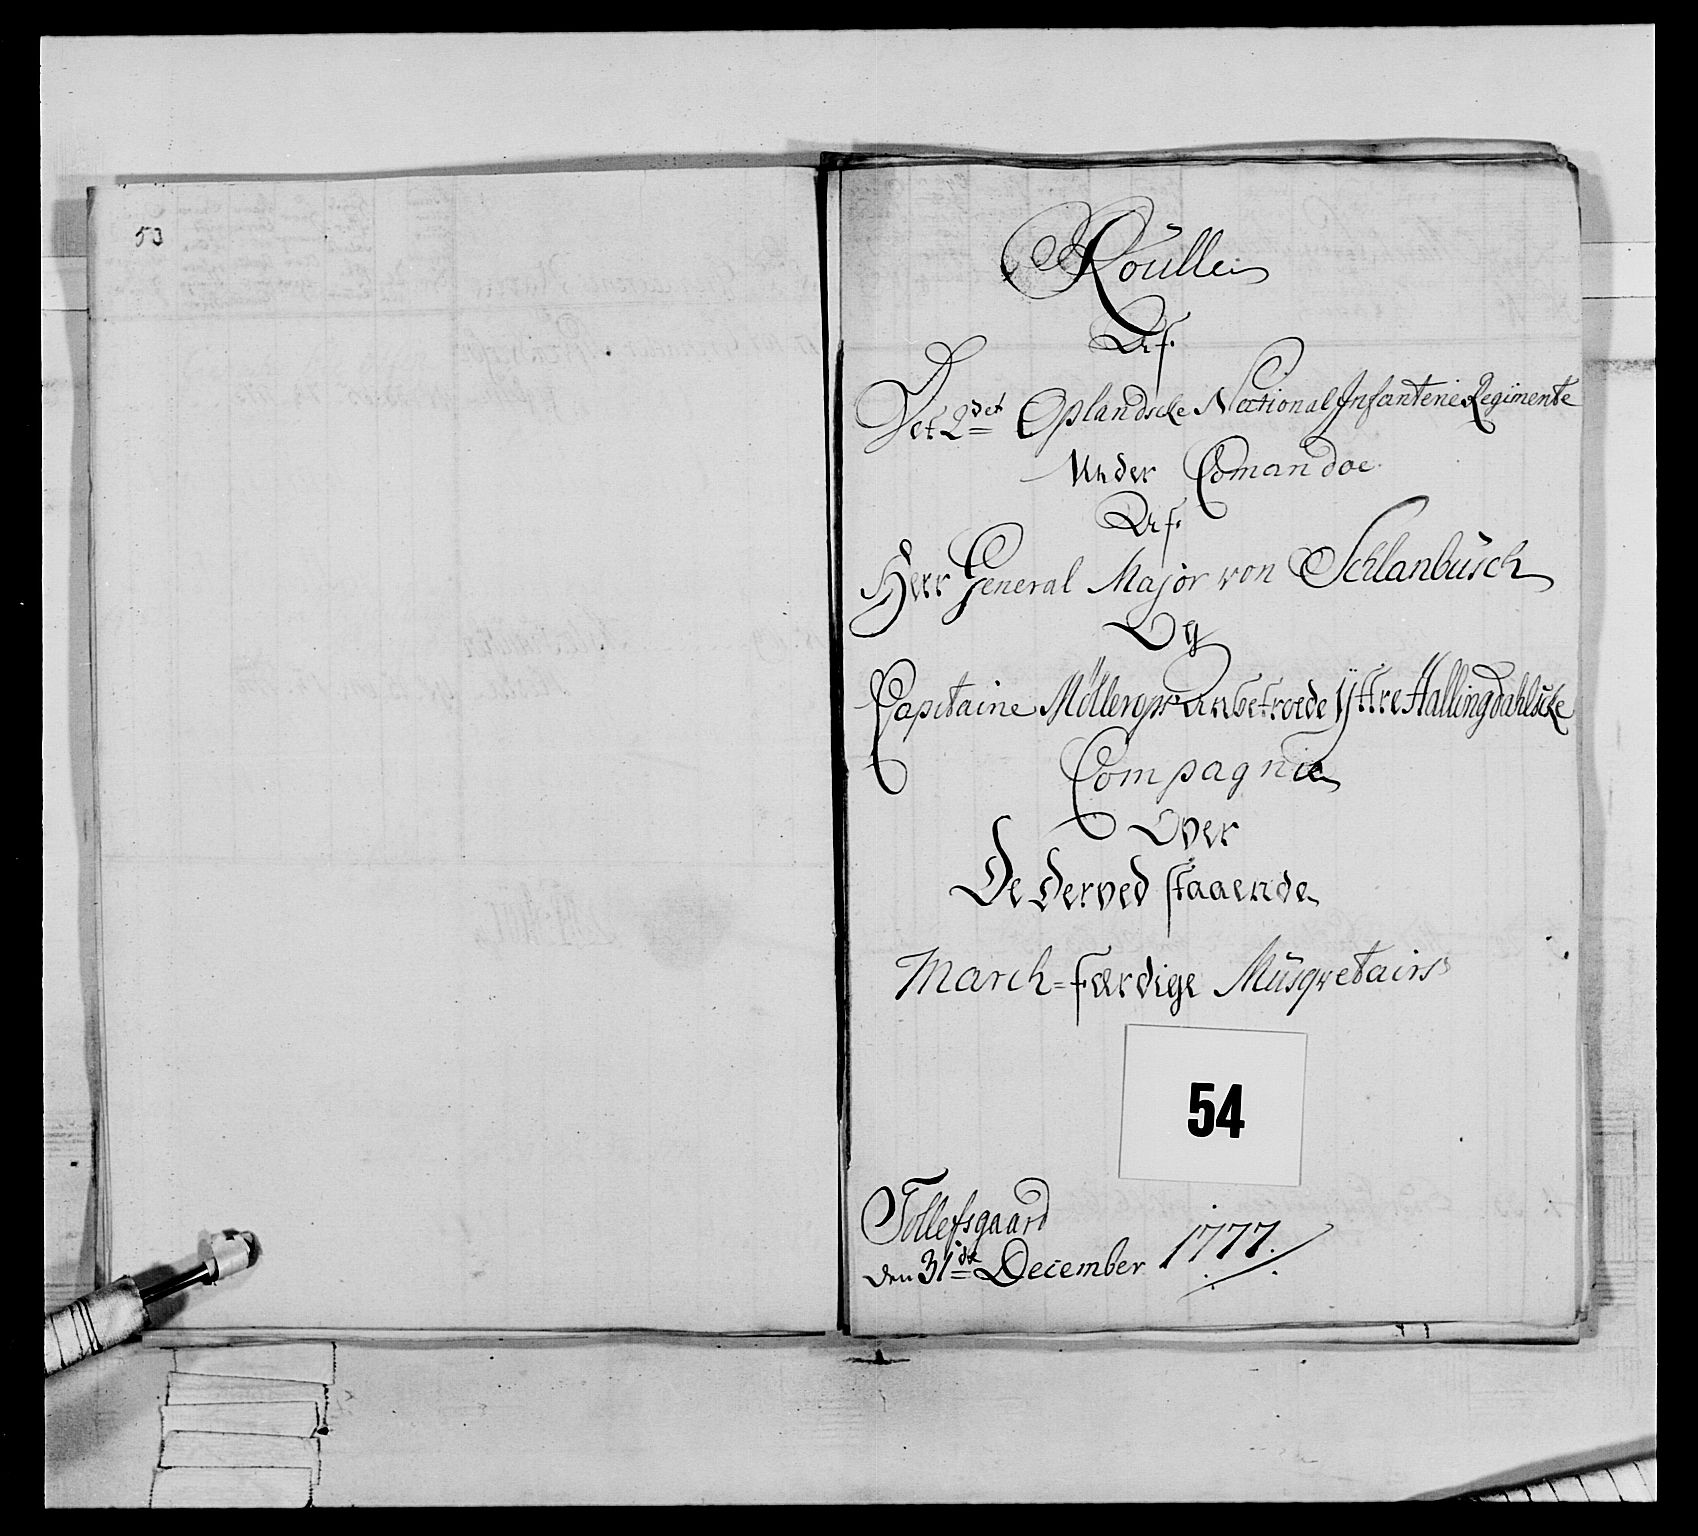 53
Roulle
Af
Det 2det Oplandske National Infanterie Regimente
Under Comandoe
Af
Herr General Major von Schlanbusch
Og
Capitaine Möllerops anbetroede Yttre Hallingdahlske
Compagnie
Over
De derved staaende
March=færdige Musqvetairs
54
Tollefsgaard
den 31de December 1777.